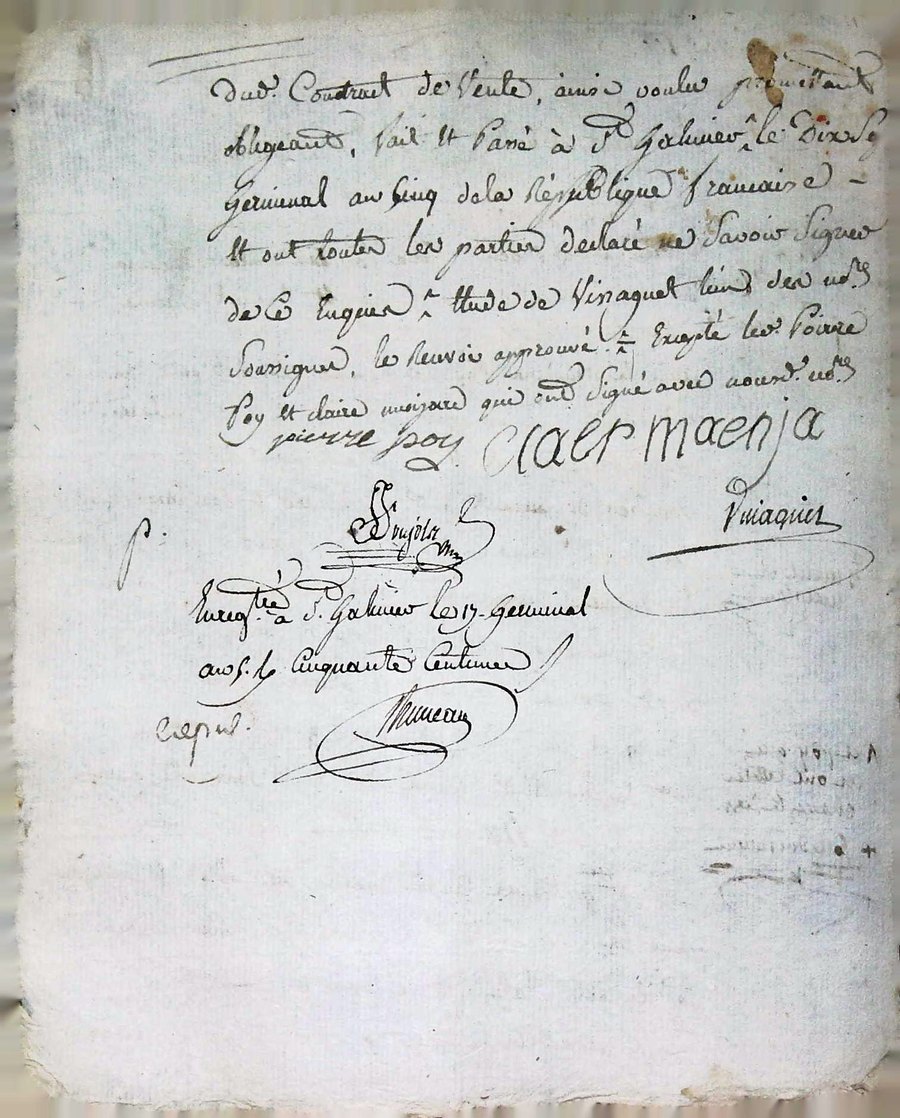 dud. Contrait de Vente, ainsi voulu promettant
obligeant, fait et Passé à St Galmier ^ le Dix Sep
Germinal an Cinq de la République francaise –
Et ont toutes les parties declaré ne Savoir Signer
de Ce Enquies ^ Etude de Vinaquet l'un des no.res
Soussignés, le Renvoi approuvé. Excepté les Poirre
Poy et claire ont Signé avec nousd. no.res
pierre poy claer maenja
Vinaquet
p.
Enreg.tré à St Galmier le 17 Germinal
an 5. R. Cinquante Centimes